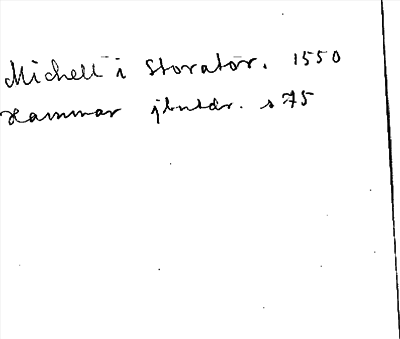 Michell i Storatör. 1550
Hammar jbutdr. s 75